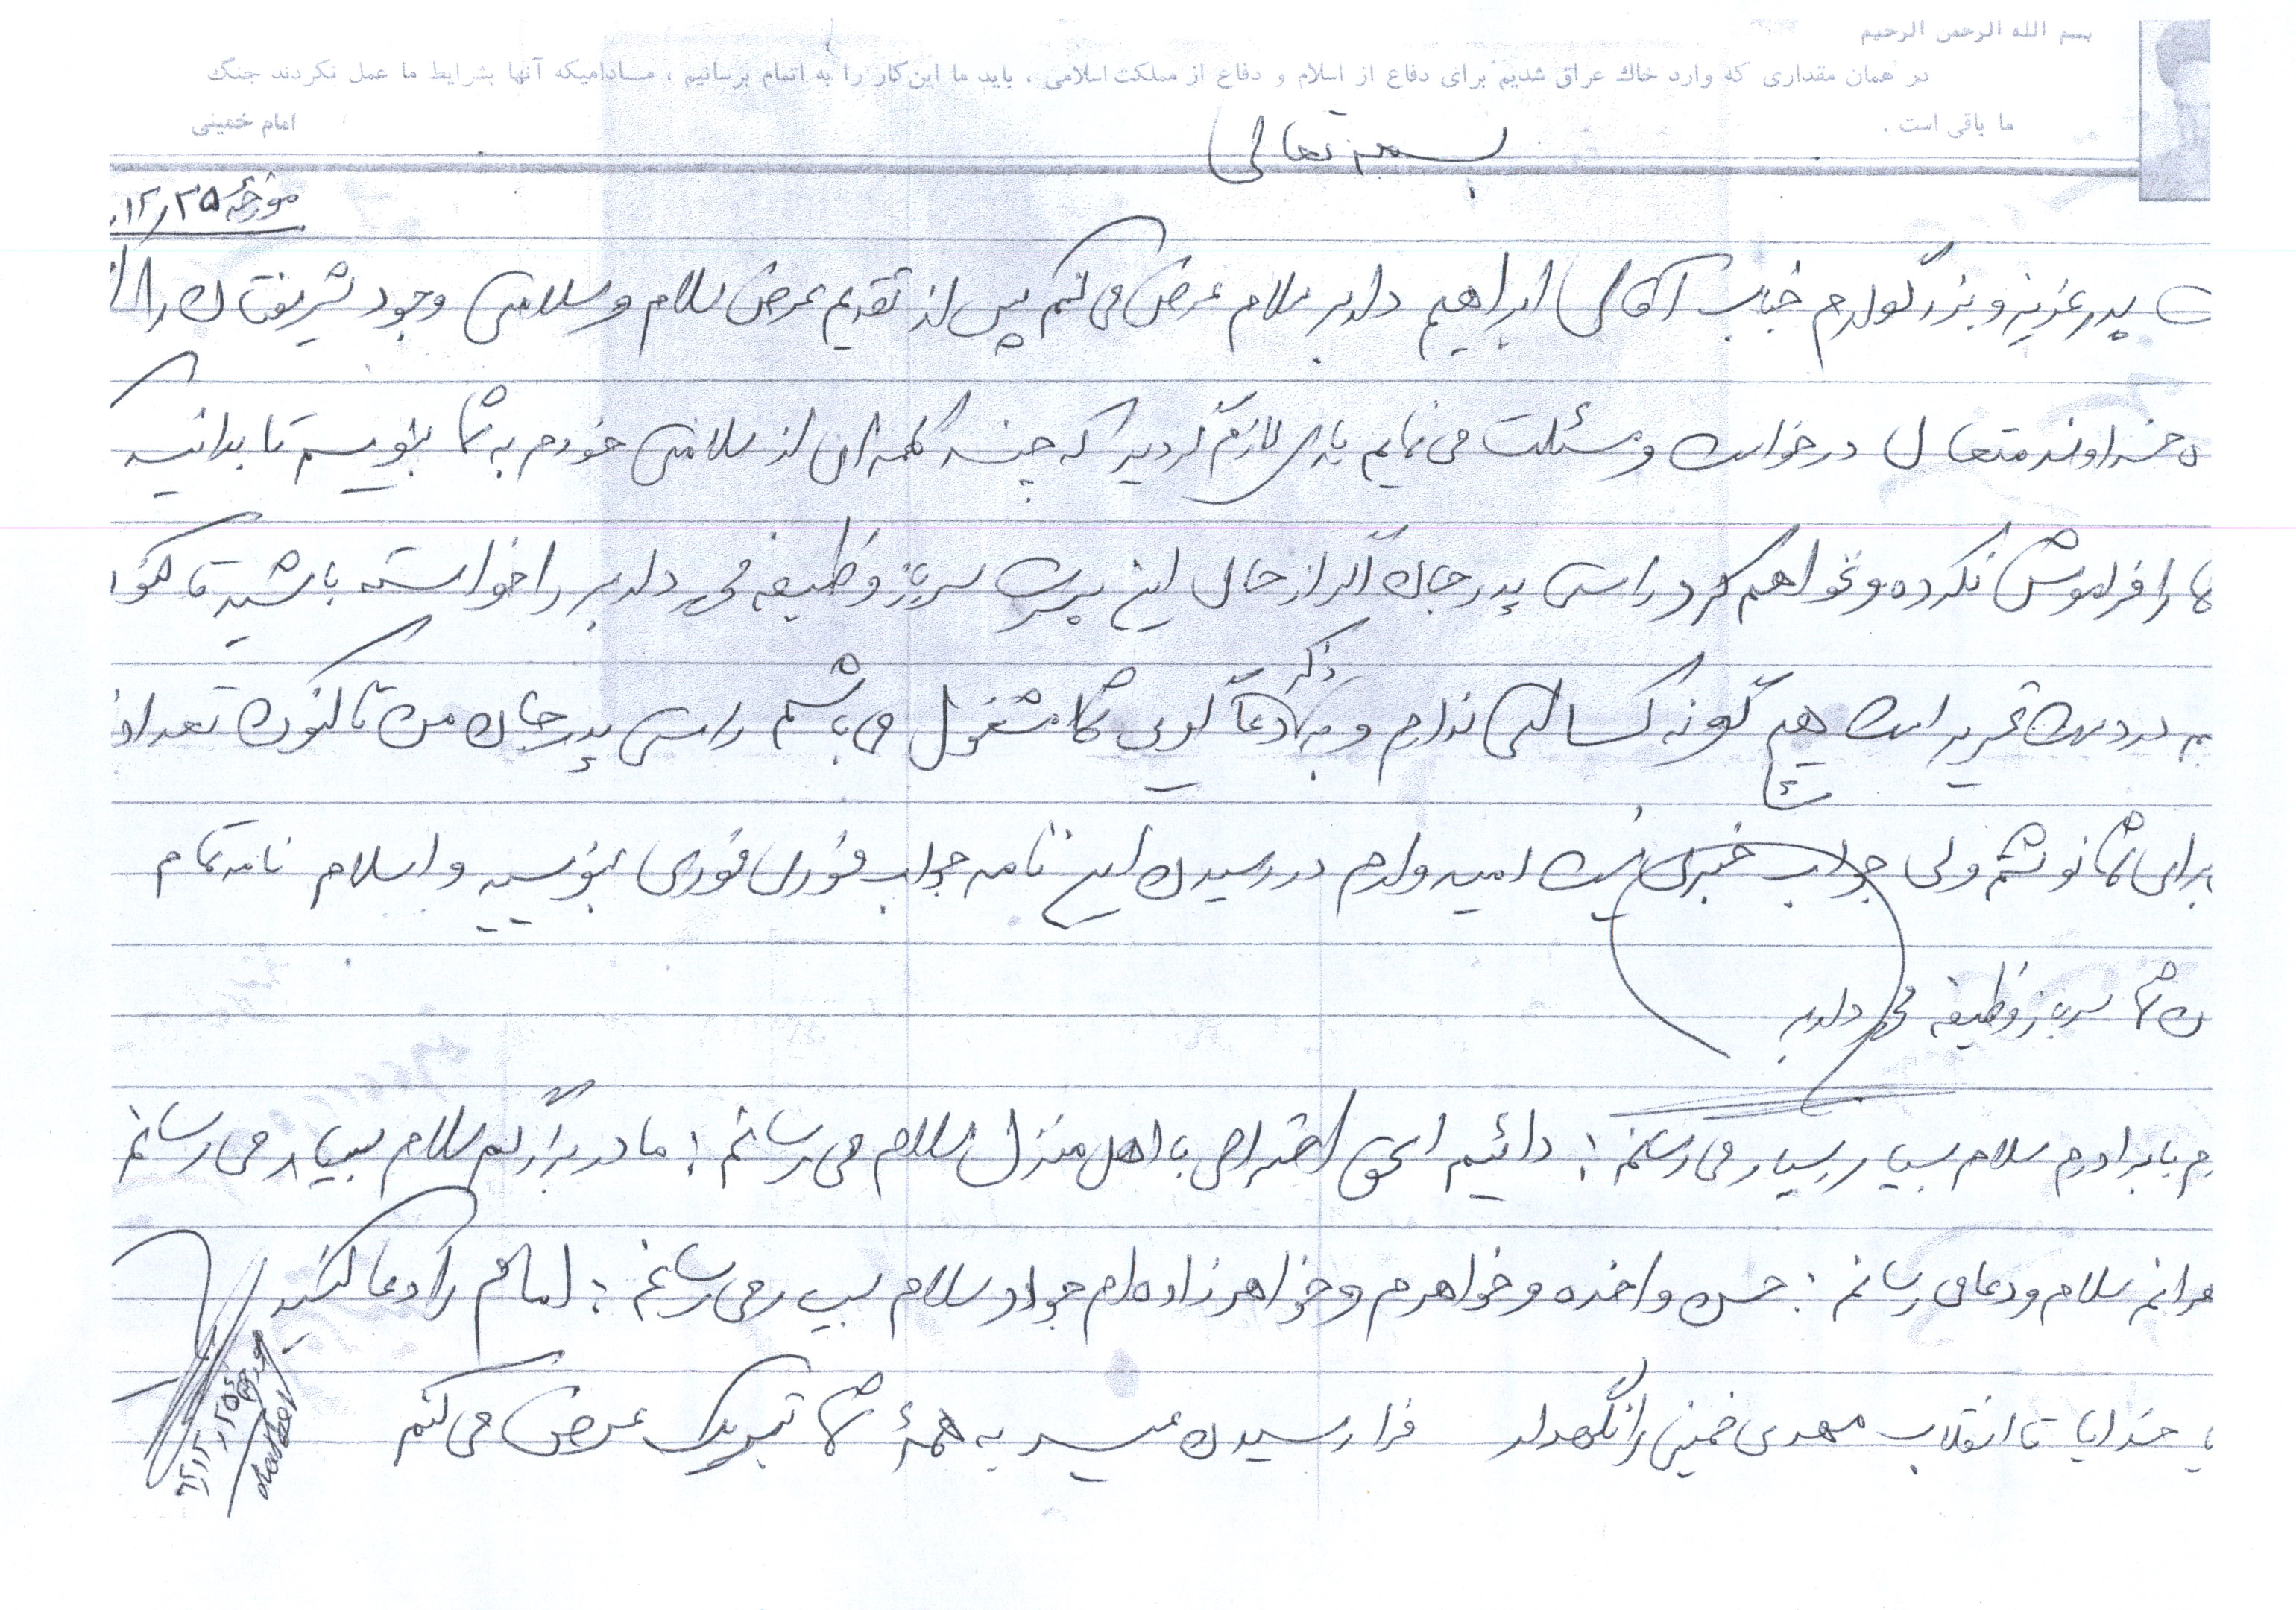 بسم الله الرحمن الرحیم
در همان مقداری که وارد خاک عراق شدیم برای دفاع از اسلام و دفاع از مملکت اسلامی ، باید ما این کار را به اتمام برسانیم ، مادامیکه آنها بشرایط ما عمل نکردند جنگ
ما باقی است .
امام خمینی
بسمه تعالی
مورخه ۱۲٫۲۵
پدر عزیز و بزرگوارم جناب آقای ابراهیم دلبر سلام عرض می کنم پس از تقدیم عرض سلام و سلامتی وجود شریفتان را از
خداوند متعال درخواست و مسئلت می نمایم باری لازم گردید که چند کلمه ای از سلامتی خودم به شما بنویسم تا بدانید
را فراموش نکرده و نخواهم کرد راستی پدر جان اگر از حال این پسرت سرباز وظیفه دلبر را خواسته باشید تا
در دست تحریر است هیچ گونه کسالتی ندارم و به ذکر دعا گویی شما مشغول می باشم راستی پدر جان من تا کنون تعداد
برای شما نوشتم ولی جواب خبری نیست امیدوارم در رسیدن این نامه جواب فوری فوری بنویسید و اسلام نامه تمام
شما سرباز وظیفه دلبر
با برادرم سلام بسیار بسیار می رسانم ؛ دائیم با اهل منزل سلام می رسانم ؛ مادر بزرگم سلام بسیار می رسانم
سلام و دعا می رسانم ؛ حسن و اخده و خواهرم و خواهرزاده ام جواد سلام می رسانم ؛ امام را دعا کنید
خدایا تا انقلاب مهدی خمینی را نگهدار فرا رسیدن عید به همهٔ شما تبریک عرض می کنم
مورخهٔ ۱۲٫۲۵